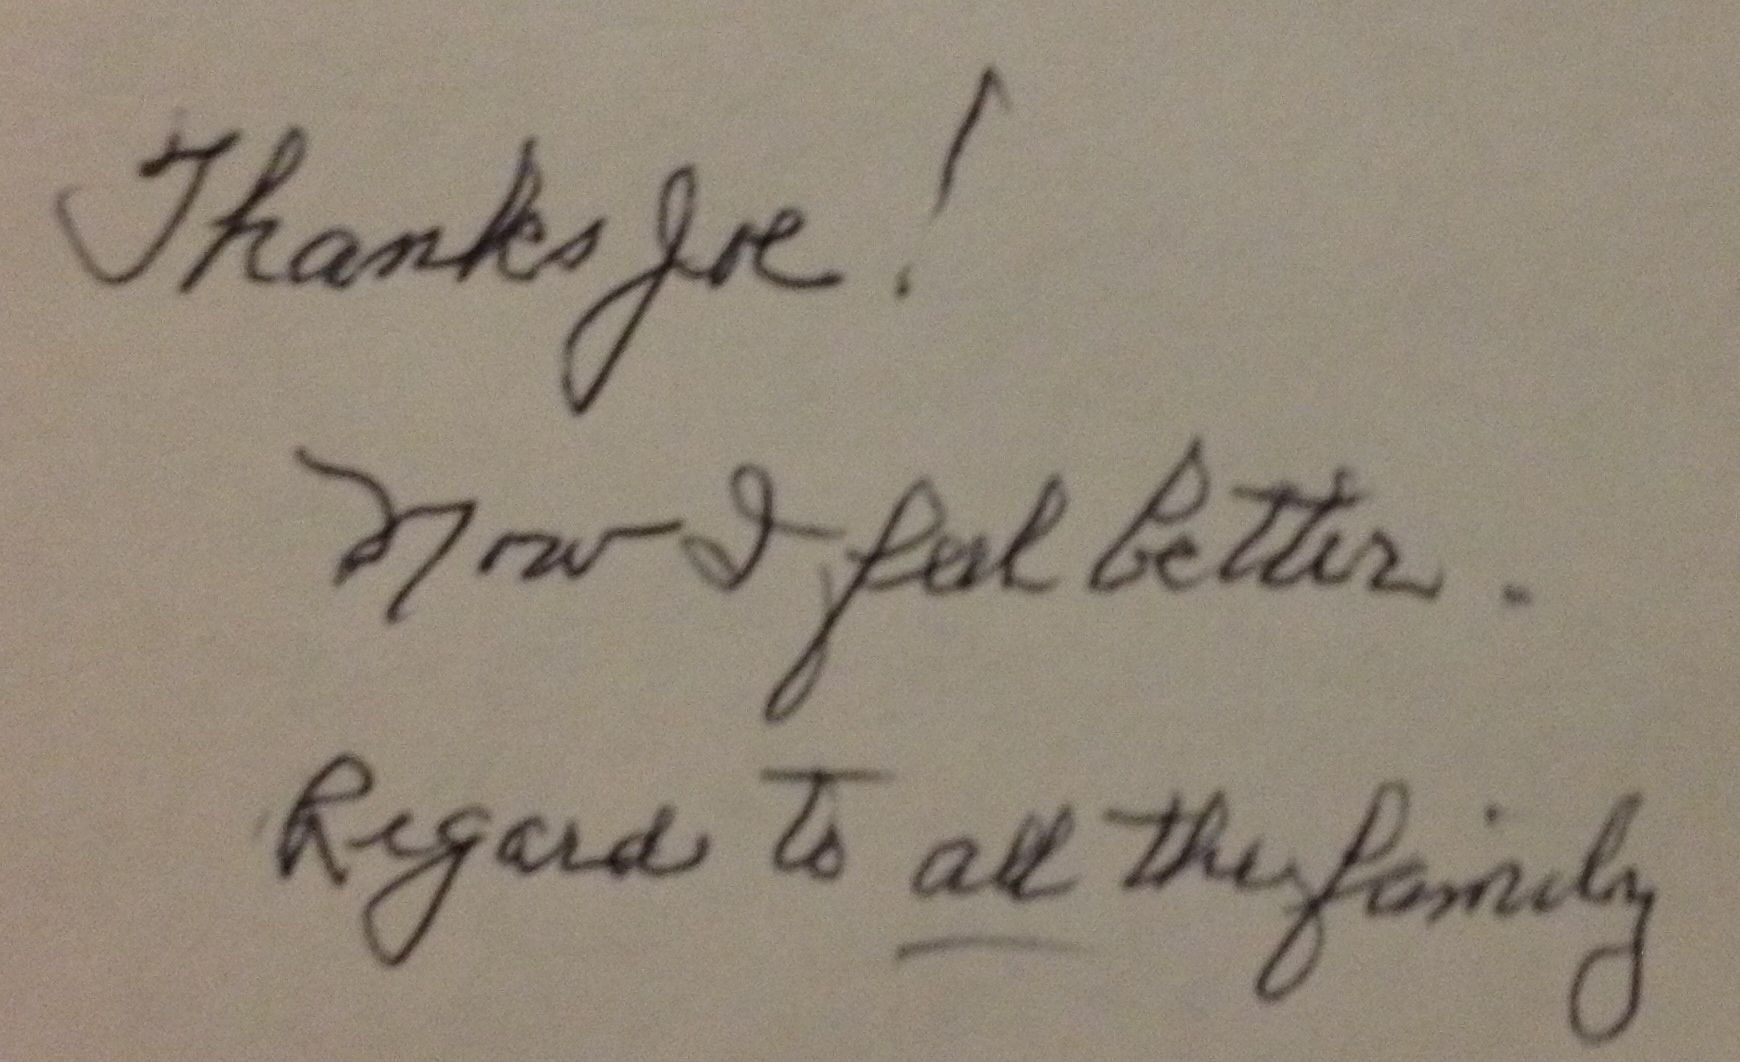 Thanks Joe!
Now I feel better.
Regard to all the family